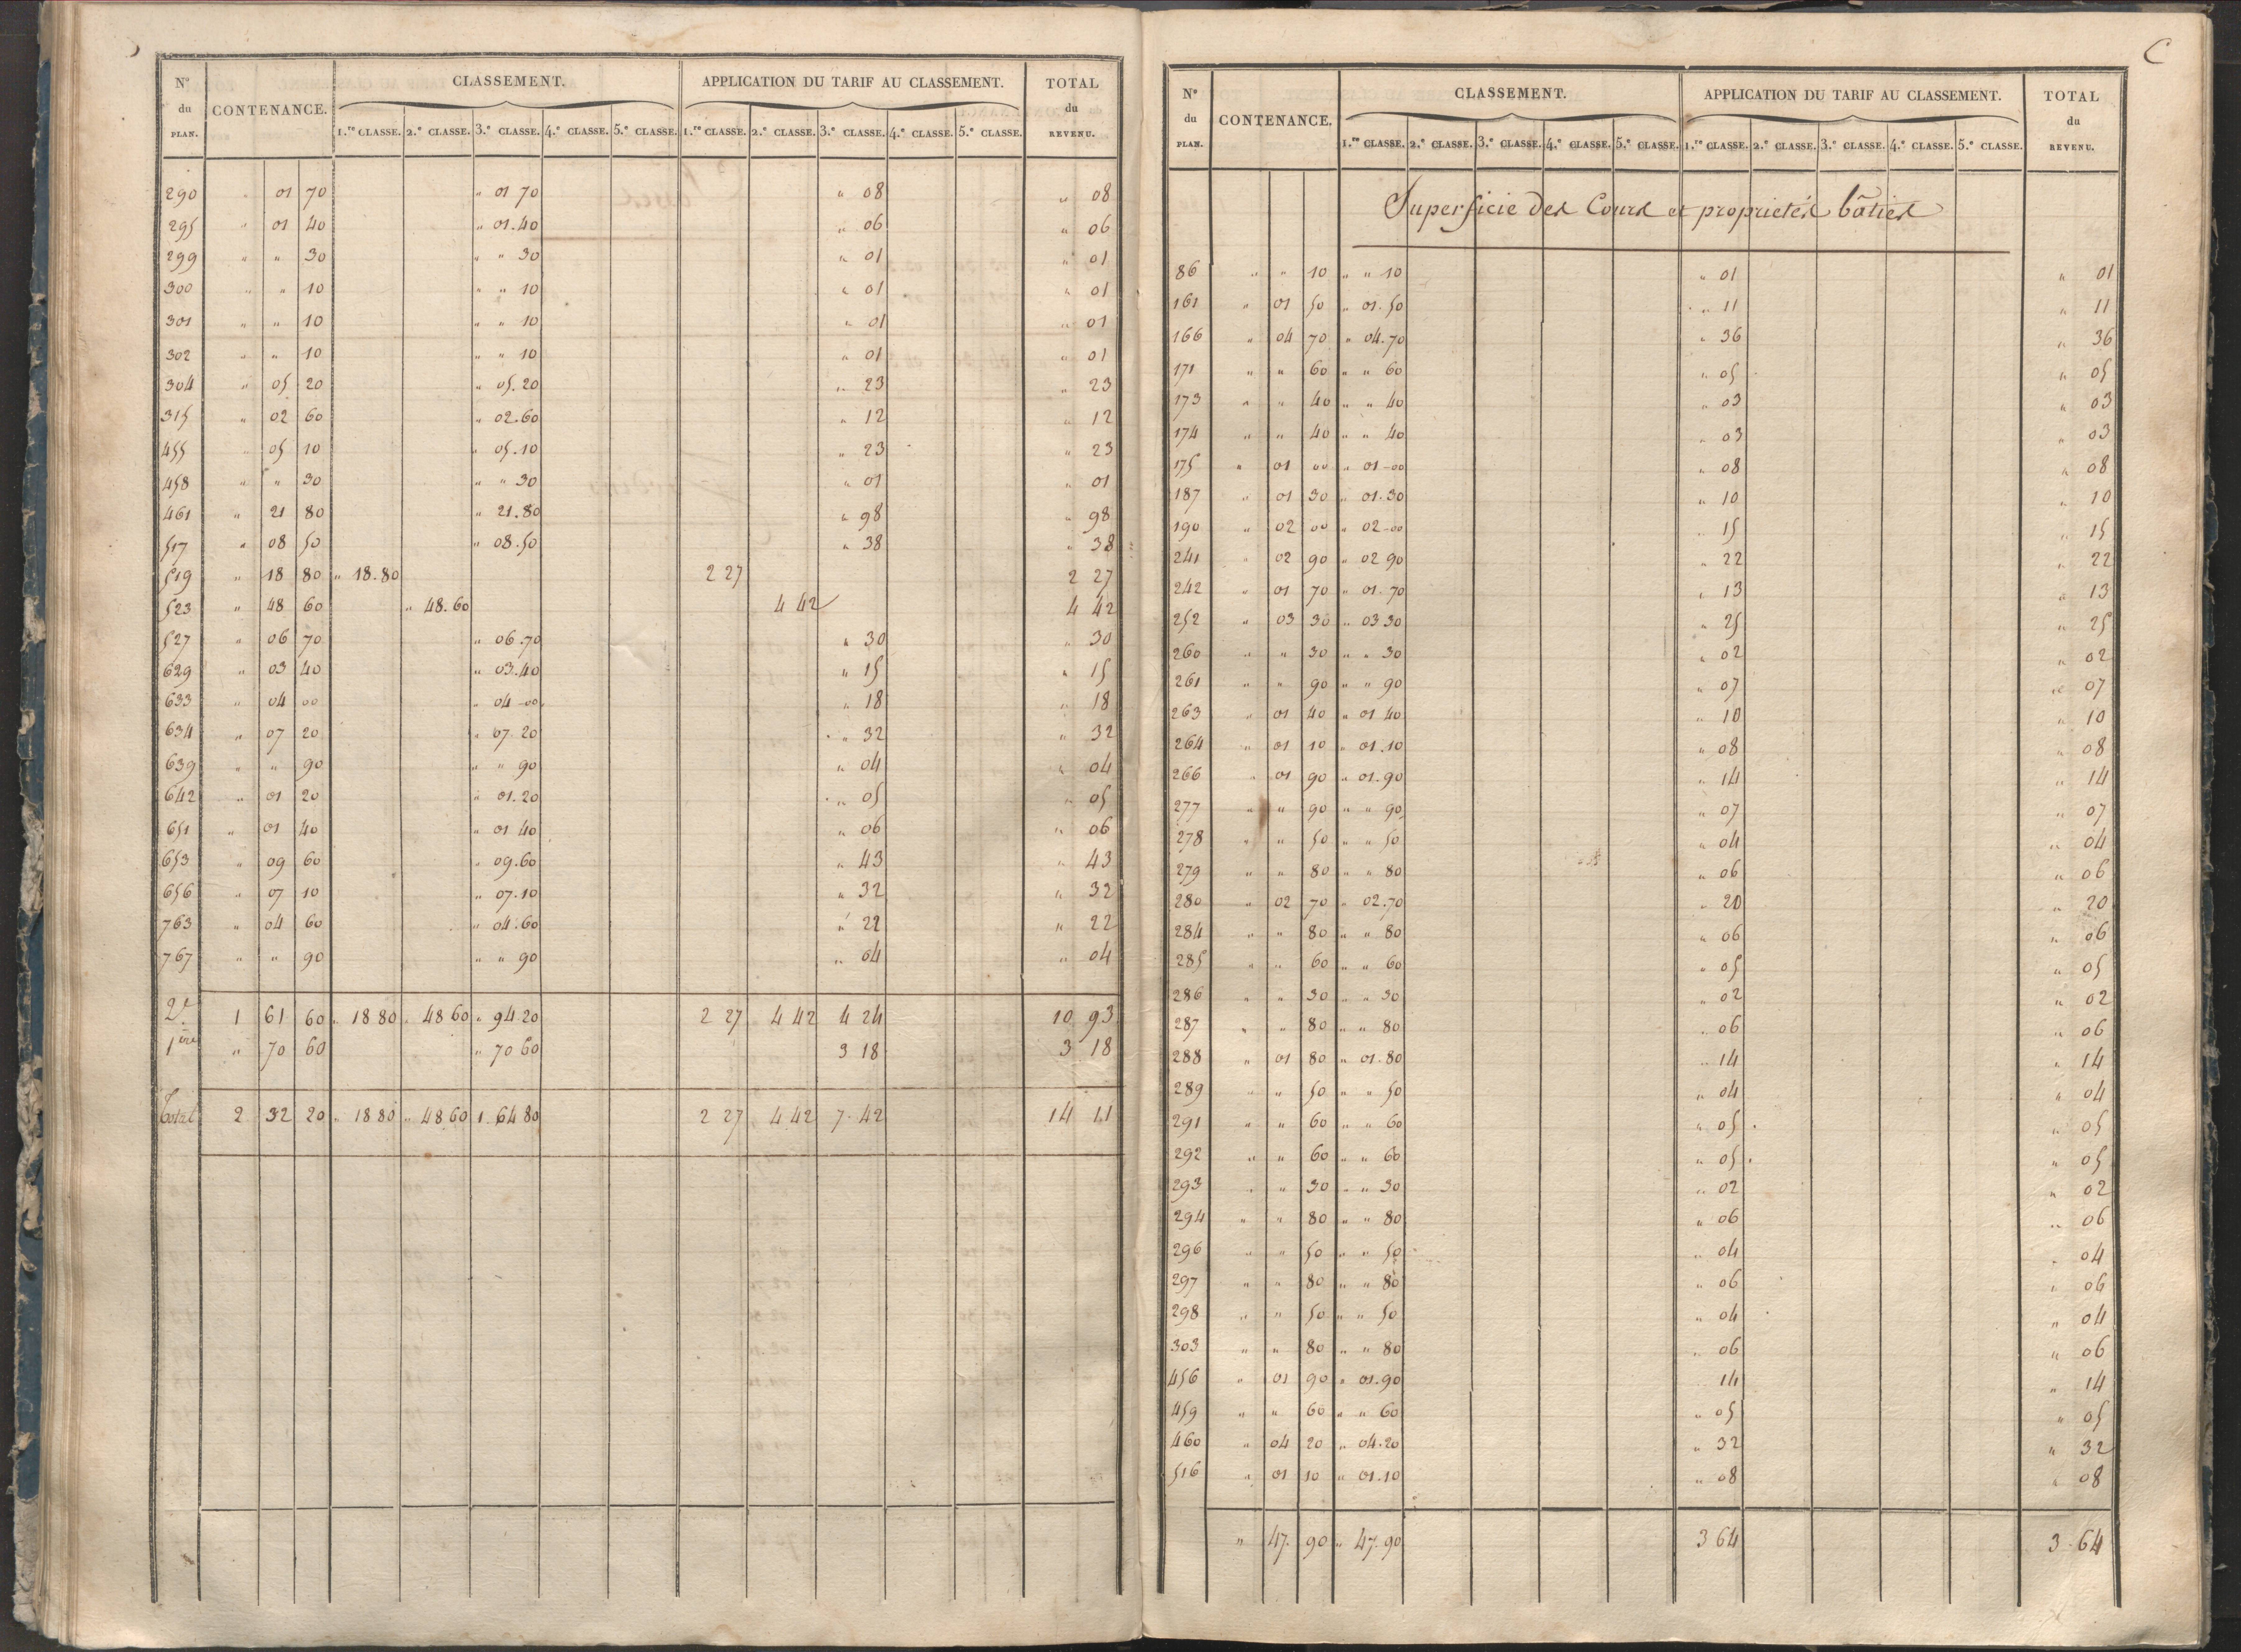 N° du PLAN. CONTENANCE. CLASSEMENT. APPLICATION DU TARIF AU CLASSEMENT. TOTAL du REVENU.
1.re CLASSE. 2.e CLASSE. 3.e CLASSE. 4.e CLASSE. 5.e CLASSE. 1.re CLASSE. 2.e CLASSE. 3.e CLASSE. 4.e CLASSE. 5.e CLASSE.
290 " 01 70 " 01 70 " 08 " 08
295 " 01 40 " 01.40 " 06 " 06
299 " " 30 " " 30 " 01 " 01
300 " " 10 " " 10 " 01 " 01
301 " " 10 " " 10 " 01 " 01
302 " " 10 " " 10 " 01 " 01
304 " 05 20 " 05.20 " 23 " 23
315 " 02 60 " 02.60 " 12 " 12
455 " 05 10 " 05.10 " 23 " 23
458 " " 30 " " 30 " 01 " 01
461 " 21 80 " 21.80 " 98 " 98
517 " 08 50 " 08.50 " 38 " 38
519 " 18 80 " 18.80 2 27 2 27
523 " 48 60 " 48.60 4 42 4 42
527 " 06 70 " 06.70 " 30 " 30
629 " 03 40 " 03.40 " 15 " 15
633 " 04 00 " 04-00 " 18 " 18
634 " 07 20 " 07.20 " 32 " 32
639 " " 90 " " 90 " 04 " 04
642 " 01 20 " 01.20 " 05 " 05
651 " 01 40 " 01 40 " 06 " 06
653 " 09 60 " 09.60 " 43 " 43
656 " 07 10 " 07.10 " 32 " 32
763 " 04 60 " 04.60 " 22 " 22
767 " " 90 " " 90 " 04 " 04
2e 1 61 60 " 18 80 " 48 60 " 94 20 2 27 4 42 4 24 10 93
1ère " 70 60 " 70 60 3 18 3 18
Total 2 32 20 " 18 80 " 48 60 1 64 80 2 27 4 42 7 42 14 11
C
N° du PLAN. CONTENANCE. CLASSEMENT. APPLICATION DU TARIF AU CLASSEMENT. TOTAL du REVENU.
1.re CLASSE. 2.e CLASSE. 3.e CLASSE. 4.e CLASSE. 5.e CLASSE. 1.re CLASSE. 2.e CLASSE. 3.e CLASSE. 4.e CLASSE. 5.e CLASSE.
Superficie des Cours et proprietés bâties
86 " " 10 " " 10 " 01 " 01
161 " 01 50 " 01.50 " 11 " 11
166 " 04 70 " 04.70 " 36 " 36
171 " " 60 " " 60 " 05 " 05
173 " " 40 " " 40 " 03 " 03
174 " " 40 " " 40 " 03 " 03
175 " 01 00 " 01-00 " 08 " 08
187 " 01 30 " 01.30 " 10 " 10
190 " 02 00 " 02-00 " 15 " 15
241 " 02 90 " 02 90 " 22 " 22
242 " 01 70 " 01.70 " 13 " 13
252 " 03 30 " 03 30 " 25 " 25
260 " " 30 " " 30 " 02 " 02
261 " " 90 " " 90 " 07 " 07
263 " 01 40 " 01 40 " 10 " 10
264 " 01 10 " 01.10 " 08 " 08
266 " 01 90 " 01.90 " 14 " 14
277 " " 90 " " 90 " 07 " 07
278 " " 50 " " 50 " 04 " 04
279 " " 80 " " 80 " 06 " 06
280 " 02 70 " 02.70 " 20 " 20
284 " " 80 " " 80 " 06 " 06
285 " " 60 " " 60 " 05 " 05
286 " " 30 " " 30 " 02 " 02
287 " " 80 " " 80 " 06 " 06
288 " 01 80 " 01.80 " 14 " 14
289 " " 50 " " 50 " 04 " 04
291 " " 60 " " 60 " 05 " 05
292 " " 60 " " 60 " 05 " 05
293 " " 30 " " 30 " 02 " 02
294 " " 80 " " 80 " 06 " 06
296 " " 50 " " 50 " 04 " 04
297 " " 80 " " 80 " 06 " 06
298 " " 50 " " 50 " 04 " 04
303 " " 80 " " 80 " 06 " 06
456 " 01 90 " 01.90 14 " 14
459 " " 60 " " 60 " 05 " 05
460 " 04 20 " 04.20 " 32 " 32
516 " 01 10 " 01.10 " 08 " 08
" 47. 90 " 47.90 3 64 3.64